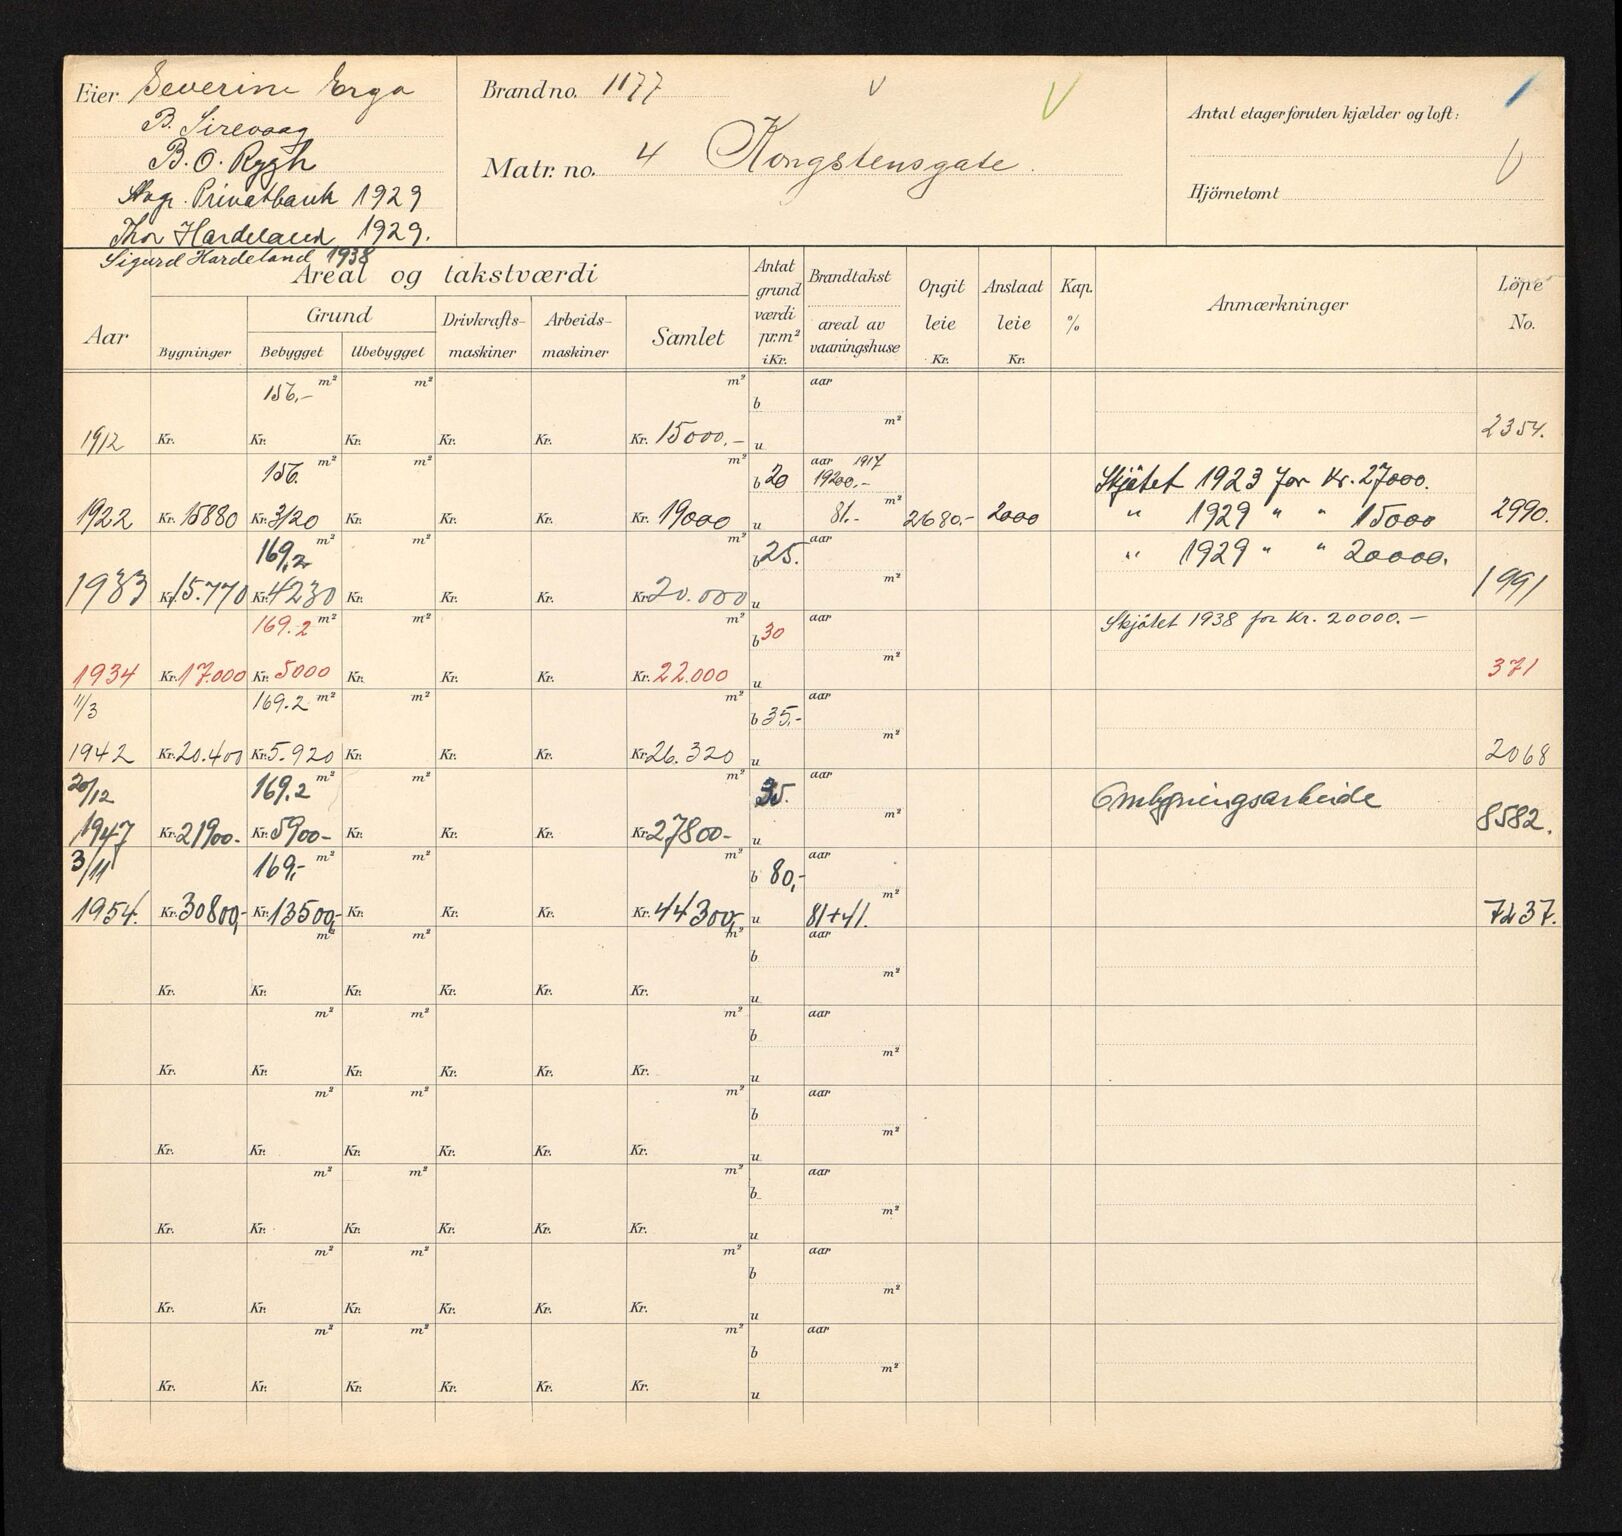 Eier Severine Erga
B. Sirevaag
B. O. Rygh
Stvgr. Privatbank 1929
Thor Hardeland 1929.
Sigurd Hardeland 1938
Brandno. 1177 v V
Matr. no. 4 Kongstensgate.
Antal etager foruten kjælder og loft:
Hjörnetomt
Aar
Areal og takstværdi
Bygninger
Grund
Bebygget Ubebygget
Drivkrafts-
maskiner
Arbeids-
maskiner
Samlet
Antat
grund
værdi
pr.m²
i Kr.
Brandtakst
areal av
vaaningshuse
Opgit
leie
Kr.
Anslaat
leie
Kr.
Kap.
%
Anmærkninger
Löpe
No.
156.- m² m² m² b aar
m²
1912 Kr. Kr. Kr. Kr. Kr. Kr. 15000.- u 2354.
156. m² m² m² b 20 aar 1917
19200.- Skjötet 1923 for Kr. 27000.
m²
1922 Kr. 15880 Kr. 3120 Kr. Kr. Kr. Kr. 19000 u 81.- 2680.- 2000 " 1929 " " 15000 2990.
169,2 m² m² m² b 25. aar " 1929 " " 20000.
m²
1933 Kr. 15.770 Kr. 4230 Kr. Kr. Kr. Kr. 20.000 u 1991
169.2 m² m² m² b 30 aar Skjötet 1938 for Kr. 20000.-
m²
1934 Kr. 17.000 Kr. 5000 Kr. Kr. Kr. Kr. 22.000 u 371
11/3 169.2 m² m² m² b 35.- aar
m²
1942 Kr. 20.400 Kr. 5.920 Kr. Kr. Kr. Kr. 26.320 u 2068
20/12 169,2 m² m² m² 35. aar Ombygningsarbeide
m²
1947 Kr. 21900.- Kr. 5900- Kr. Kr. Kr. Kr. 27800- u 8582.
3/11 169,- m² m² m² b 80,- aar
m²
1954. Kr. 30800,- Kr. 13500,- Kr. Kr. Kr. Kr. 44300,- u 81+41. 7237.
m² m² m² b aar
m²
Kr. Kr. Kr. Kr. Kr. Kr. u
m² m² m² b aar
m²
Kr. Kr. Kr. Kr. Kr. Kr. u
m² m² m² b aar
m²
Kr. Kr. Kr. Kr. Kr. Kr. u
m² m² m² b aar
m²
Kr. Kr. Kr. Kr. Kr. Kr. u
m² m² m² b aar
m²
Kr. Kr. Kr. Kr. Kr. Kr. u
m² m² m² b aar
m²
Kr. Kr. Kr. Kr. Kr. Kr. u